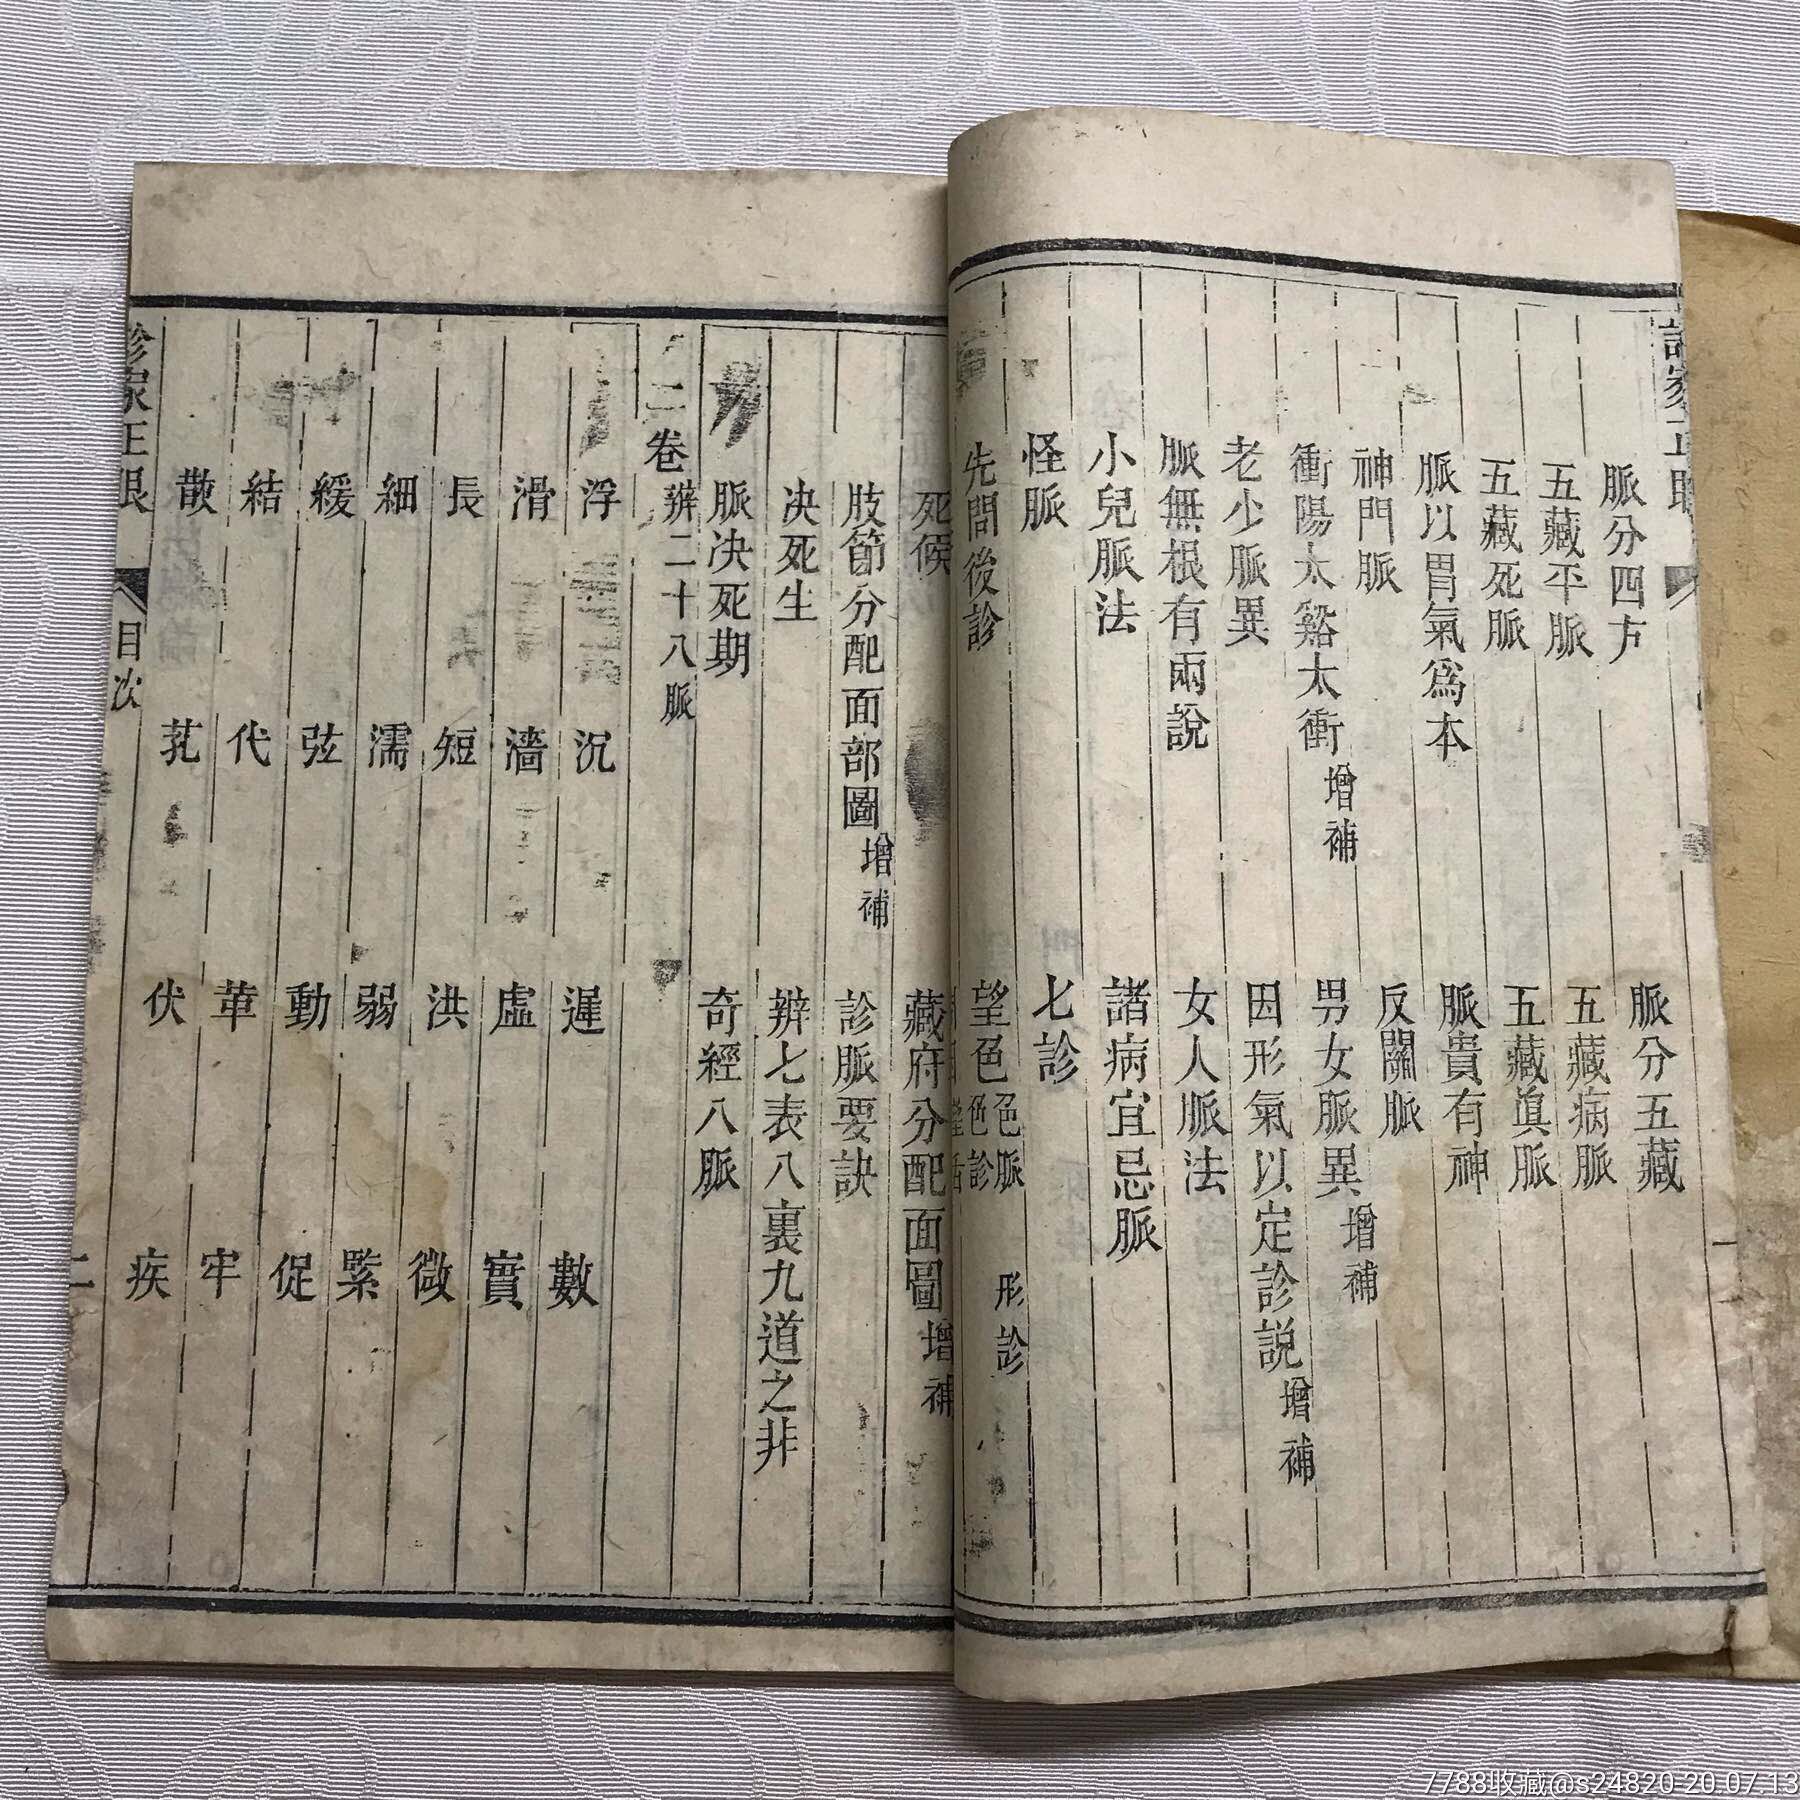 脈分四方　脈分五藏
五藏平脈　五藏病脈
五藏死脈　五藏眞脈
脈以胃氣爲本　脈貴有神
神門脈　反關脈
衝陽太谿太衝增補　男女脈異增補
老少脈異　因形氣以定診説增補
脈無根有兩說　女人脈法
小兒脈法　諸病宜忌脈
怪脈　七診
先問後診　望色色脈　形診
色診
死候　藏府分配面圖增補
肢節分配面部圖增補　診脈要訣
決死生　辨七表八裏九道之非
脈決死期　奇經八脈
二卷辨二十八脈
浮　沉　遲　數
滑　濇　虛　實
長　短　洪　微
細　濡　弱　緊
緩　弦　動　促
結　代　革　牢
散　芤　伏　疾
診家正眼　目次　二
7788收藏@s24820 20.07.13